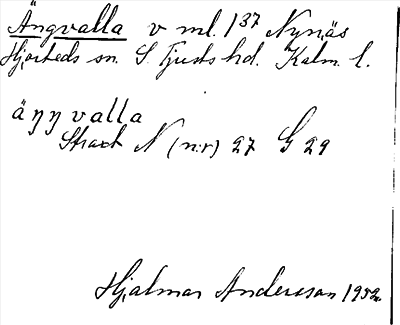 Ängvalla v ml. 1³⁷ Nynäs
Hjorteds sn. S. Tjusts hd. Kalm. l.
äŋŋvalla
Straxt N (n:r) 27 G 29
Hjalmar Andersson 1932.